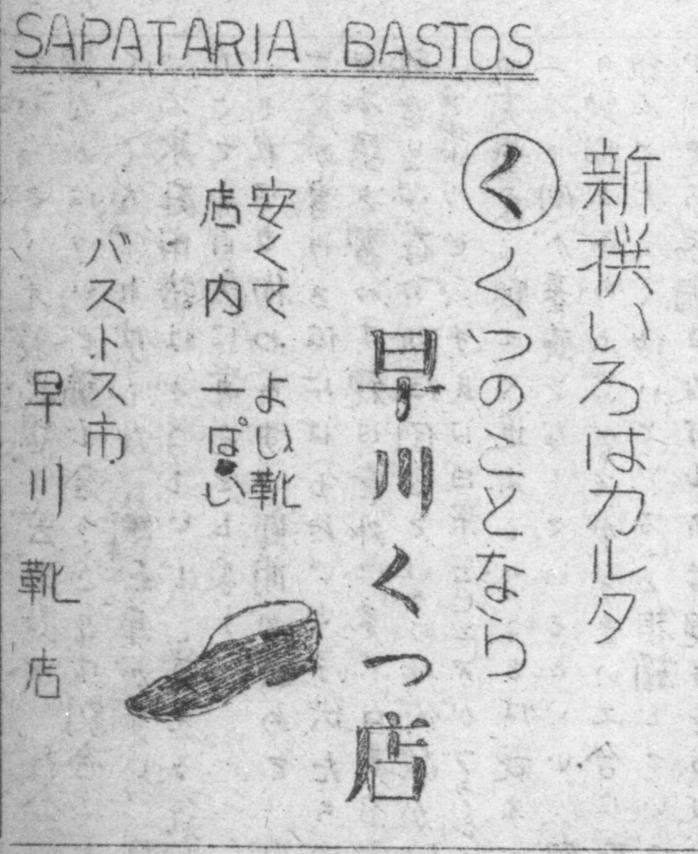 SAPATARIA BASTOS
新撰いろはカルタ
く くつのことなら
早川くつ店
安くて よい靴
店内 一ぱい
バストス市
早川靴店